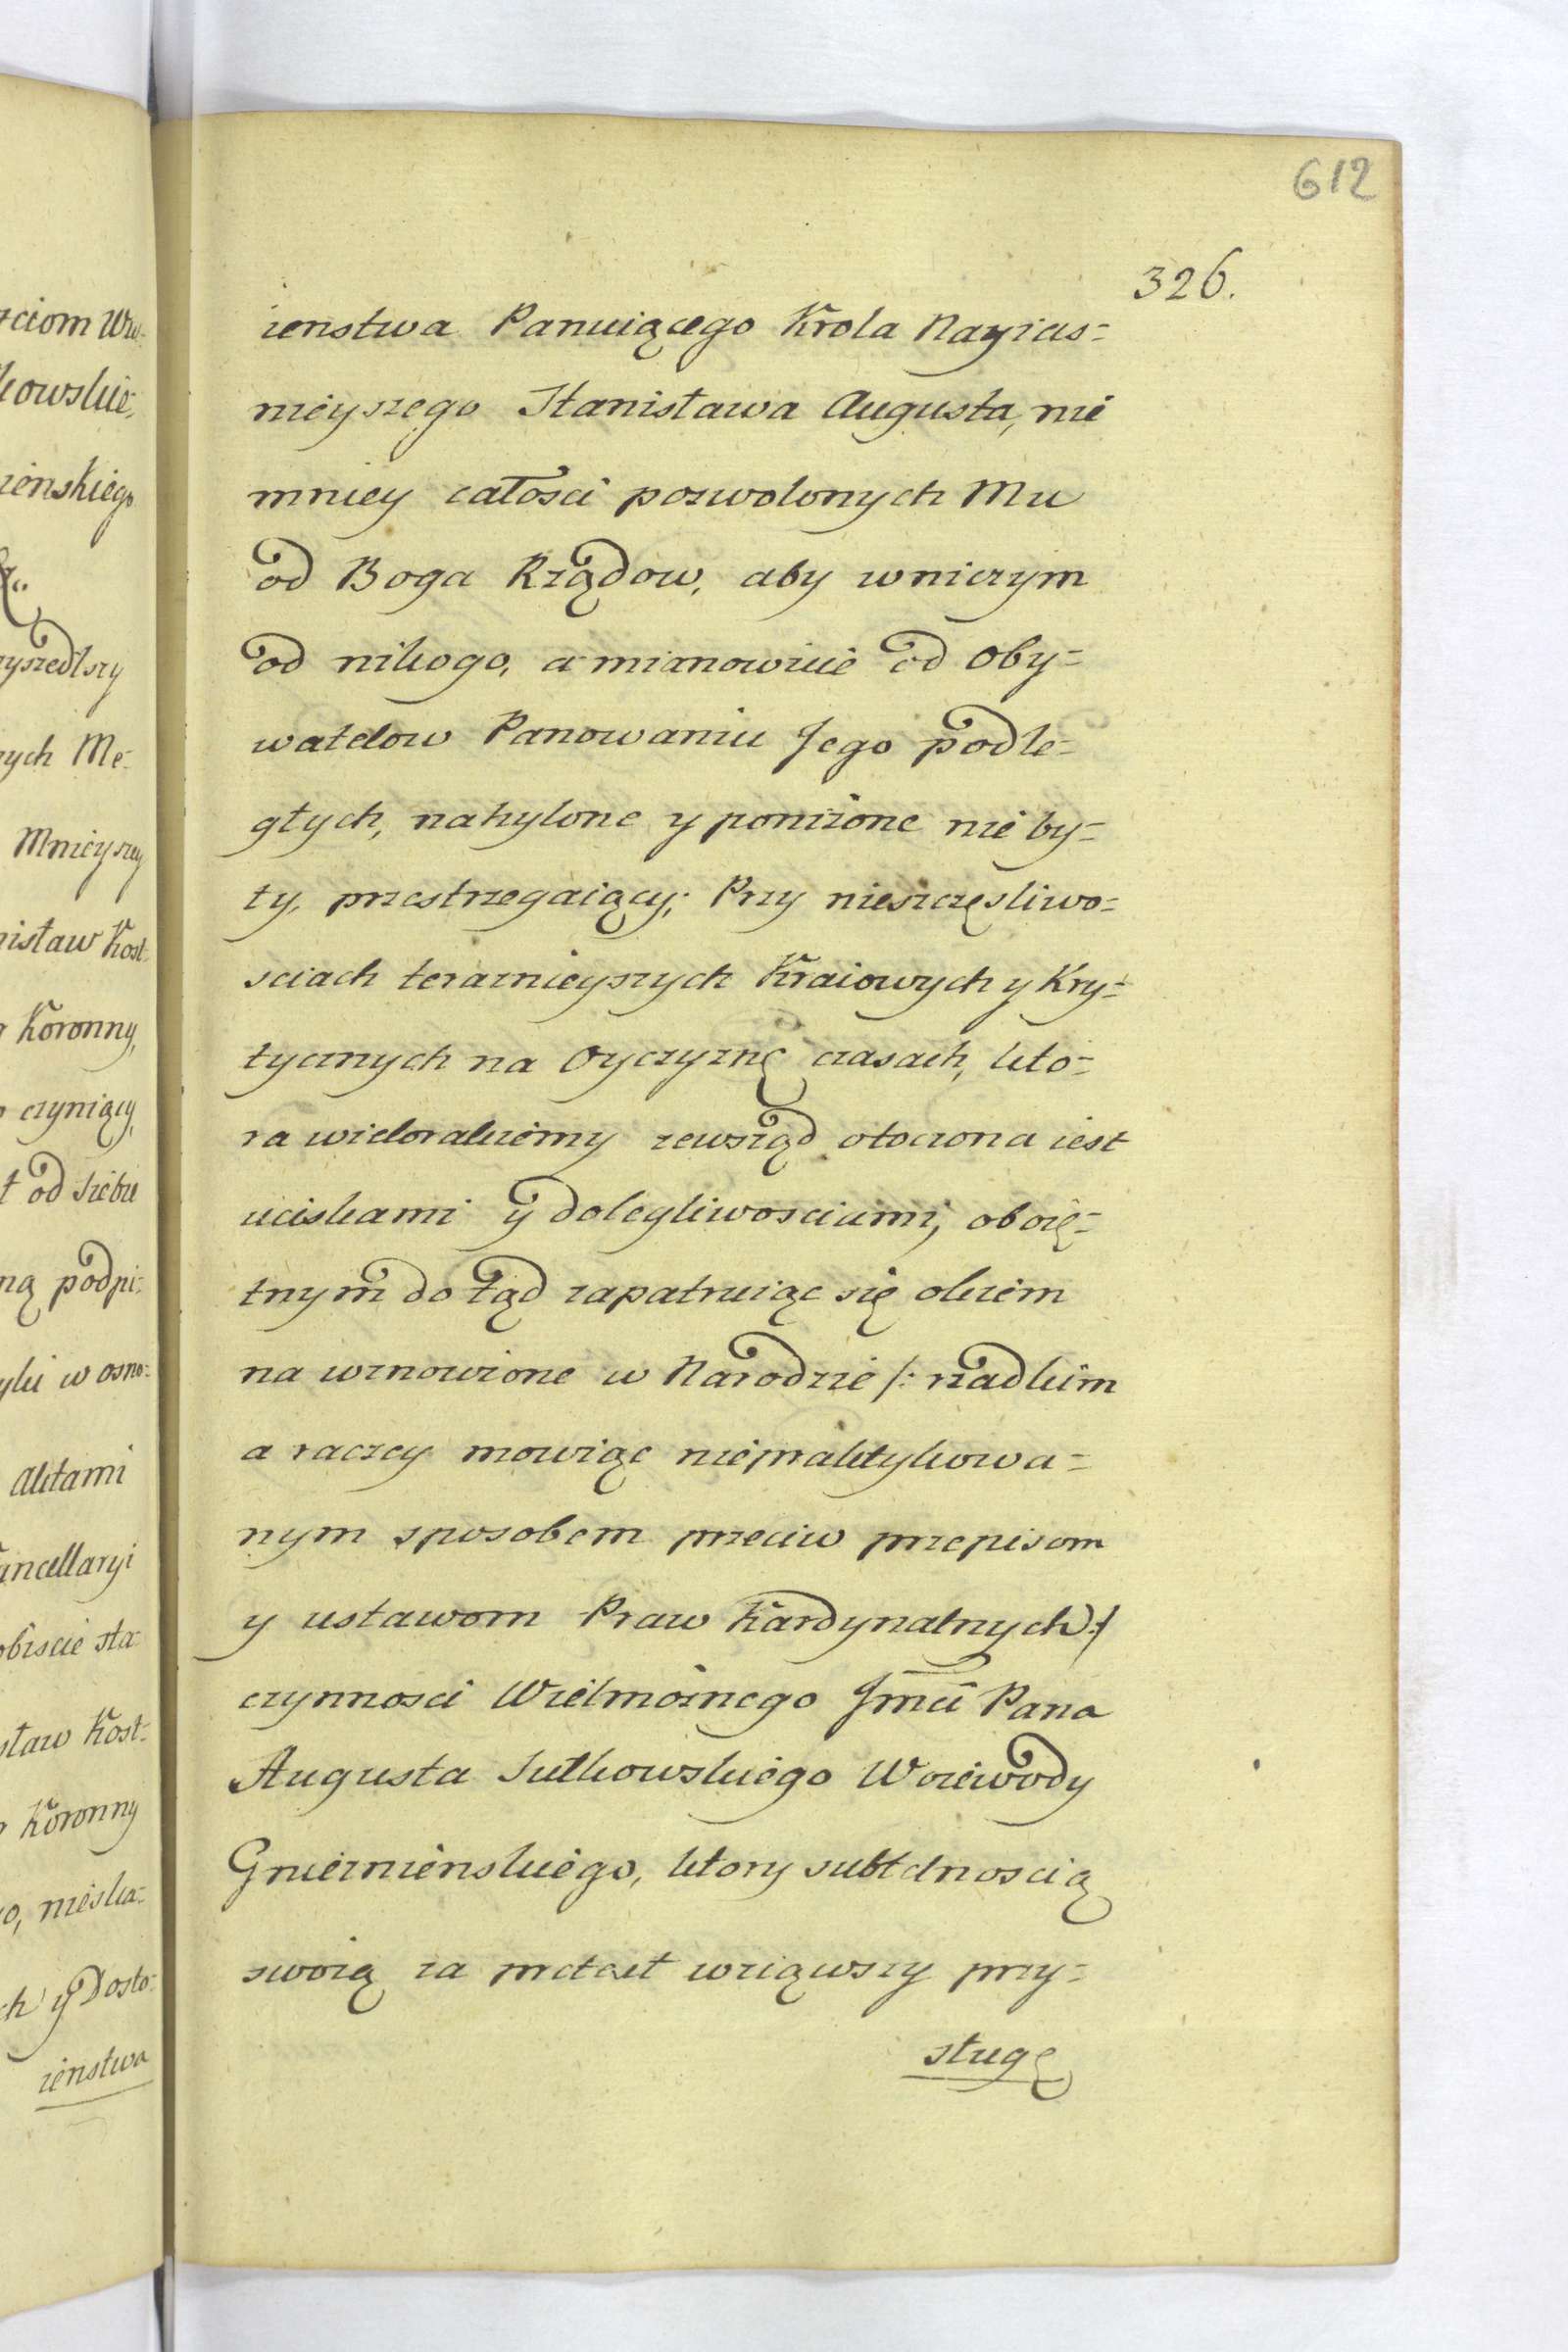 612
326.
ienstwa Panuiącego Krola Nayias=
nieyszego Stanisława Augusta, nie
mniey całosci pozwolonych Mu
od Boga Rządow, aby wniczym
od nikogo, a mianowicie od Oby=
watelow Panowaniu Jego podle=
głych, nahylone y poniżone nie by=
ły, przestrzegaiący; Przy nieszczęsliwo=
sciach teraznieyszych Kraiowych y Kry=
tycznych na Oyczyznę czasach, kto=
ra wielorakiemy zewsząd otoczona iest
uciskami y dolegliwosciami, oboię=
tnym do tąd zapatruiąc się okiem
na wznowione w Narodzie /: rzadkim
a raczey mowiąc niepraktykowa=
nym sposobem przeciw przepisom
y ustawom Praw Kardynalnych :/
czynnosci Wielmożnego Jmci Pana
Augusta Sułkowskiego Woiewody
Gnieznienskiego, ktory subtelnoscią
swoią za pretext wziąwszy przy=
sługę
rciom Ww=
kowskie,
zenskiego
zyszedlszy
nych Me=
Mnieyszy
nisław Kost=
Koronny,
czyniący,
t od siebie
ną podpi=
ylii w osno=
Aktami
ancellaryi
obiscie sta=
sław Kost=
Koronny
o, nieska=
ch y Dosto=
ienstwa